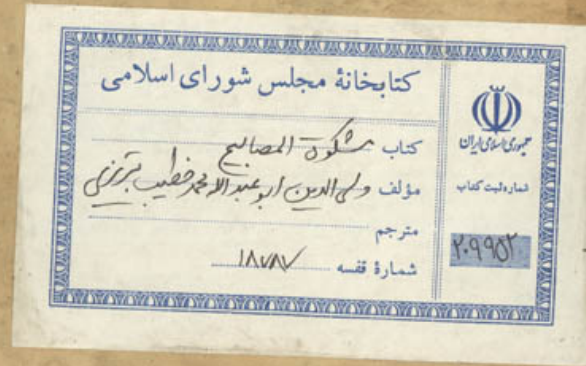 کتابخانهٔ مجلس شورای اسلامی
کتاب مشکوة المصابیح
مؤلف ولی الدین ابو عبدالله محمد خطیب تبریزی
مترجم
شمارهٔ قفسه ۱۸۷۸۷
جمهوری اسلامی ایران
شماره ثبت کتاب
۲۰۹۹۵۲